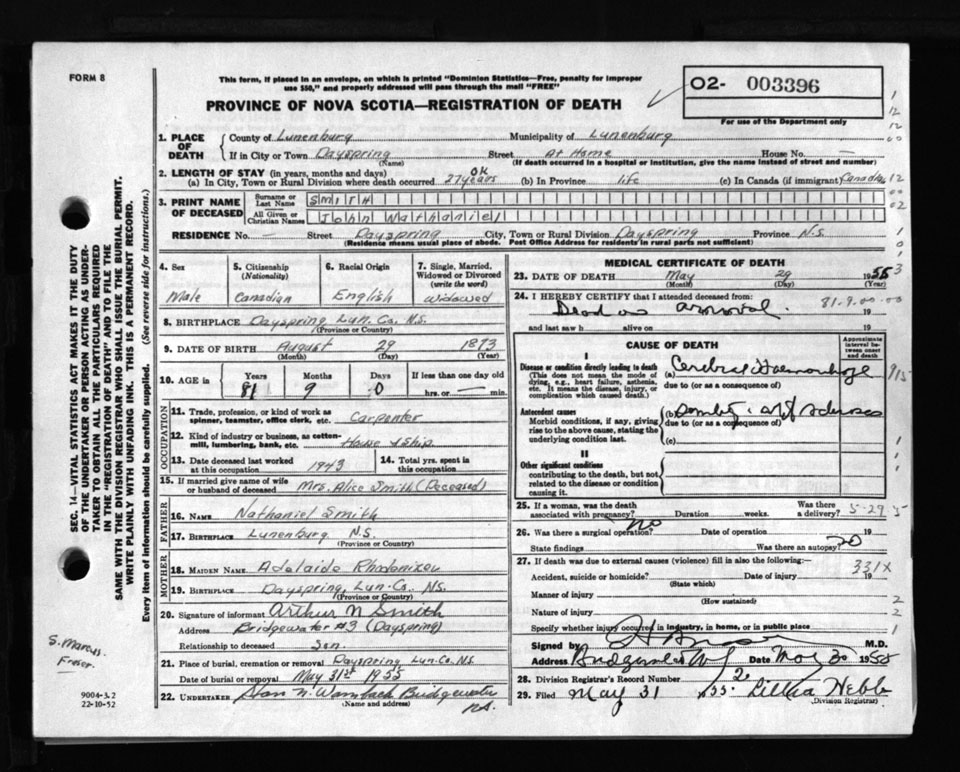 FORM 8
This form, if placed in an envelope, on which is printed "Dominion Statistics—Free, penalty for improper
use $50," and properly addressed will pass through the mail "FREE"
02- 003396
For use of the Department only
PROVINCE OF NOVA SCOTIA—REGISTRATION OF DEATH
1. PLACE OF DEATH County of Lunenburg Municipality of Lunenburg
If in City or Town Dayspring Street At Home House No. —
(Name) (If death occurred in a hospital or institution, give the name instead of street and number)
2. LENGTH OF STAY (in years, months and days) OK
(a) In City, Town or Rural Division where death occurred 27 years (b) In Province life (c) In Canada (if immigrant) Canadian
3. PRINT NAME OF DECEASED
Surname or Last Name SMITH
All Given or Christian Names John Nathaniel
RESIDENCE No. — Street Dayspring City, Town or Rural Division Dayspring Province N.S.
(Residence means usual place of abode. Post Office Address for residents in rural parts not sufficient)
4. Sex Male
5. Citizenship (Nationality) Canadian
6. Racial Origin English
7. Single, Married, Widowed or Divorced (write the word) widowed
8. BIRTHPLACE Dayspring Lun. Co. N.S.
(Province or Country)
9. DATE OF BIRTH August 29 1873
(Month) (Day) (Year)
10. AGE in Years Months Days If less than one day old
81 9 0 hrs. or — min.
OCCUPATION
11. Trade, profession, or kind of work as spinner, teamster, office clerk, etc. Carpenter
12. Kind of industry or business, as cotton-mill, lumbering, bank, etc. House & Ship
13. Date deceased last worked at this occupation 1943
14. Total yrs. spent in this occupation
15. If married give name of wife or husband of deceased Mrs. Alice Smith (Deceased)
FATHER
16. NAME Nathaniel Smith
17. BIRTHPLACE Lunenburg N.S.
(Province or Country)
MOTHER
18. MAIDEN NAME Adelaide Rhodenizer
19. BIRTHPLACE Dayspring Lun. Co. N.S.
(Province or Country)
20. Signature of informant Arthur N Smith
Address Bridgewater #3 (Dayspring)
Relationship to deceased Son.
21. Place of burial, cremation or removal Dayspring Lun. Co. N.S.
Date of burial or removal May 31st 1955
22. UNDERTAKER Bridgewater
(Name and address) N.S.
MEDICAL CERTIFICATE OF DEATH
23. DATE OF DEATH May 29 1955
(Month) (Day) (Year)
24. I HEREBY CERTIFY that I attended deceased from: 81-9.00-00
Dead on arrival. 19
and last saw h alive on 19
CAUSE OF DEATH
Approximate interval between onset and death
I
Disease or condition directly leading to death
(This does not mean the mode of dying, e.g., heart failure, asthenia, etc. It means the disease, injury, or complication which caused death.)
(a) Cerebral Haemorrhage
due to (or as a consequence of)
Antecedent causes
Morbid conditions, if any, giving rise to the above cause, stating the underlying condition last.
(b)
due to (or as a consequence of)
(c)
II
Other significant conditions
contributing to the death, but not related to the disease or condition causing it.
25. If a woman, was the death associated with pregnancy? Duration weeks. Was there a delivery? 5-29 5
26. Was there a surgical operation? No Date of operation 19
State findings Was there an autopsy? No
27. If death was due to external causes (violence) fill in also the following:— 331X
Accident, suicide or homicide? Date of injury 19
(State which)
Manner of injury
(How sustained)
Nature of injury
Specify whether injury occurred in industry, in home, or in public place
Signed by M.D.
Address Bridgewater N.S. Date May 30 1955
28. Division Registrar's Record Number 2
29. Filed May 31 1955 Lillia Hebb
(Division Registrar)
SEC. 14—VITAL STATISTICS ACT MAKES IT THE DUTY
OF THE UNDERTAKER OR PERSON ACTING AS UNDER-
TAKER TO OBTAIN ALL THE PARTICULARS REQUIRED
IN THE "REGISTRATION OF DEATH" AND TO FILE THE
SAME WITH THE DIVISION REGISTRAR WHO SHALL ISSUE THE BURIAL PERMIT.
WRITE PLAINLY WITH UNFADING INK. THIS IS A PERMANENT RECORD.
Every item of information should be carefully supplied. (See reverse side for instructions.)
S. Marcus.
Fraser.
9004-3.2
22-10-52